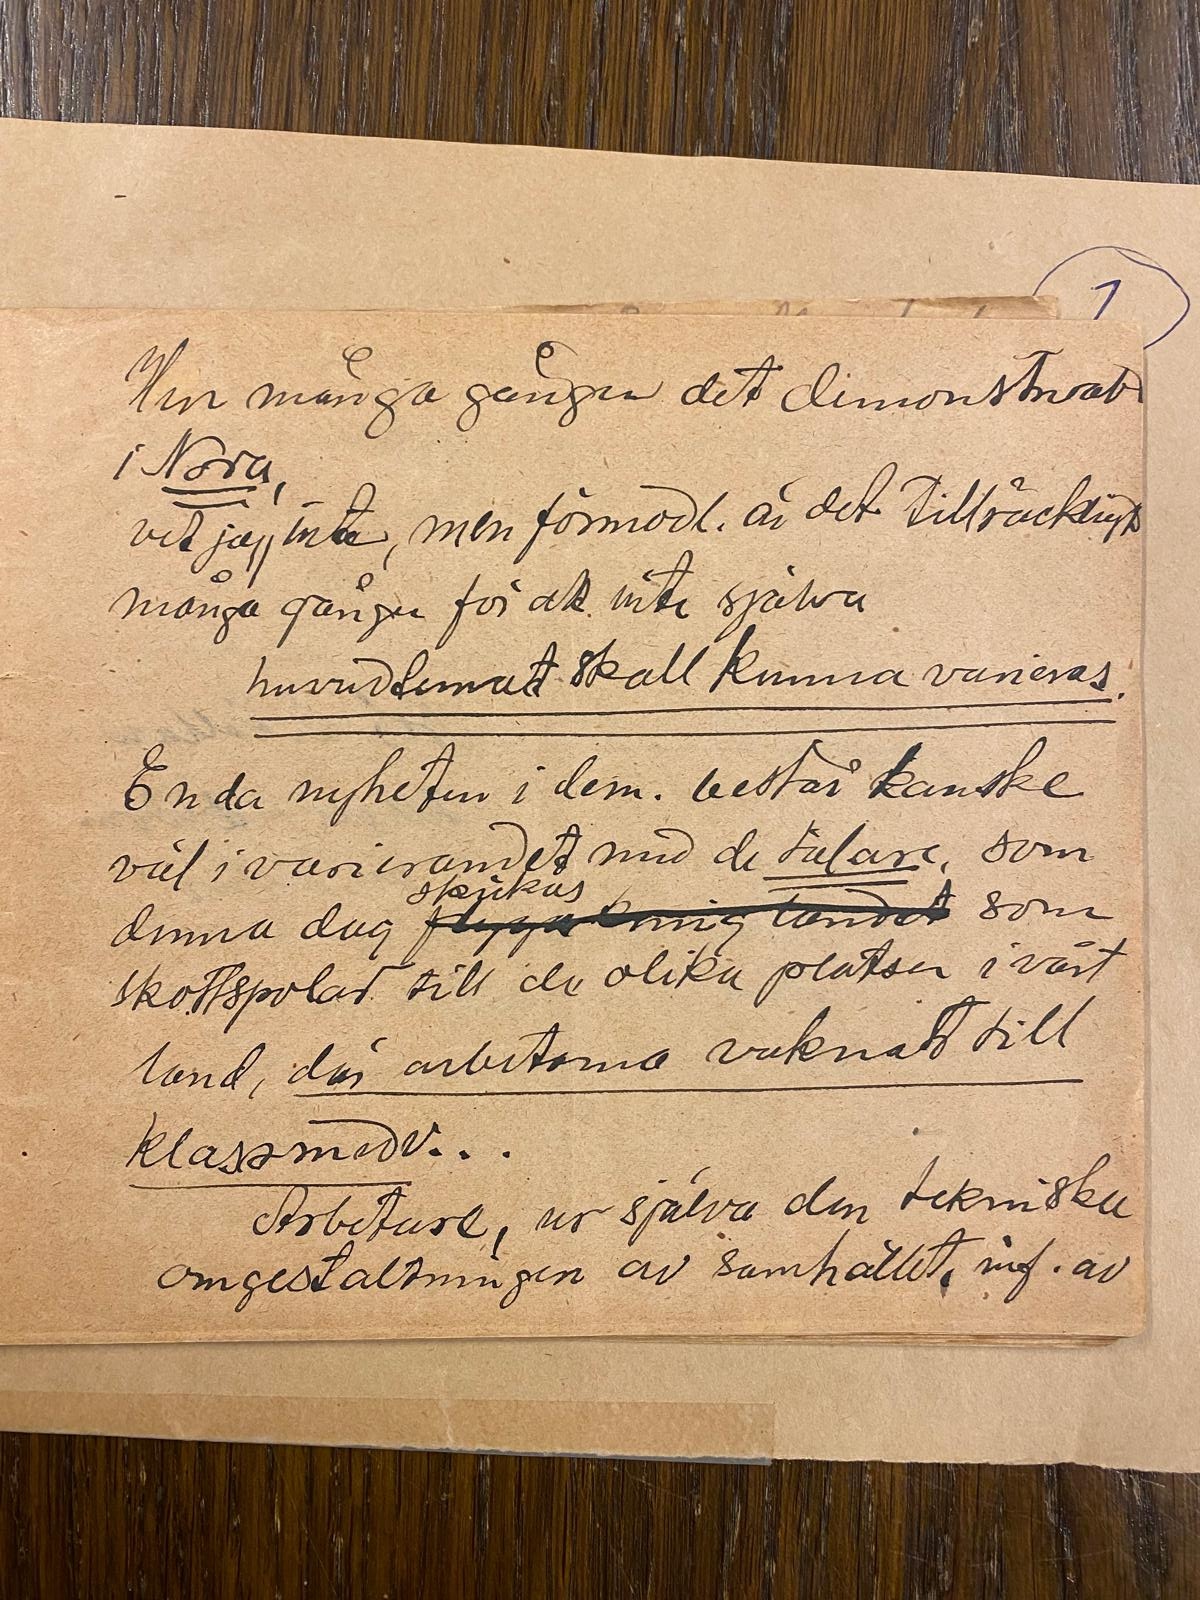 1
Hur många gånger det demonstrat
i Nora,
vet jag inte, men förmodl. är det tillräckligt
många gånger för att inte själva
huvudtemat skall kunna varieras.
Enda nyheten i dem. består kanske
väl i varierandet med de talare, som
skickas
denna dag flyga kring landet som
skottspolar till de olika platser i vårt
land, där arbetarna vaknat till
klassmedv...
Arbetare, ur själva den tekniska
omgestaltningen av samhället, inf. av